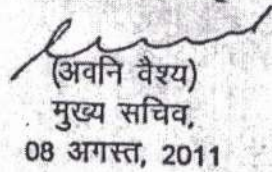 (अवनि वैश्य)
मुख्य सचिव,
08 अगस्त, 2011